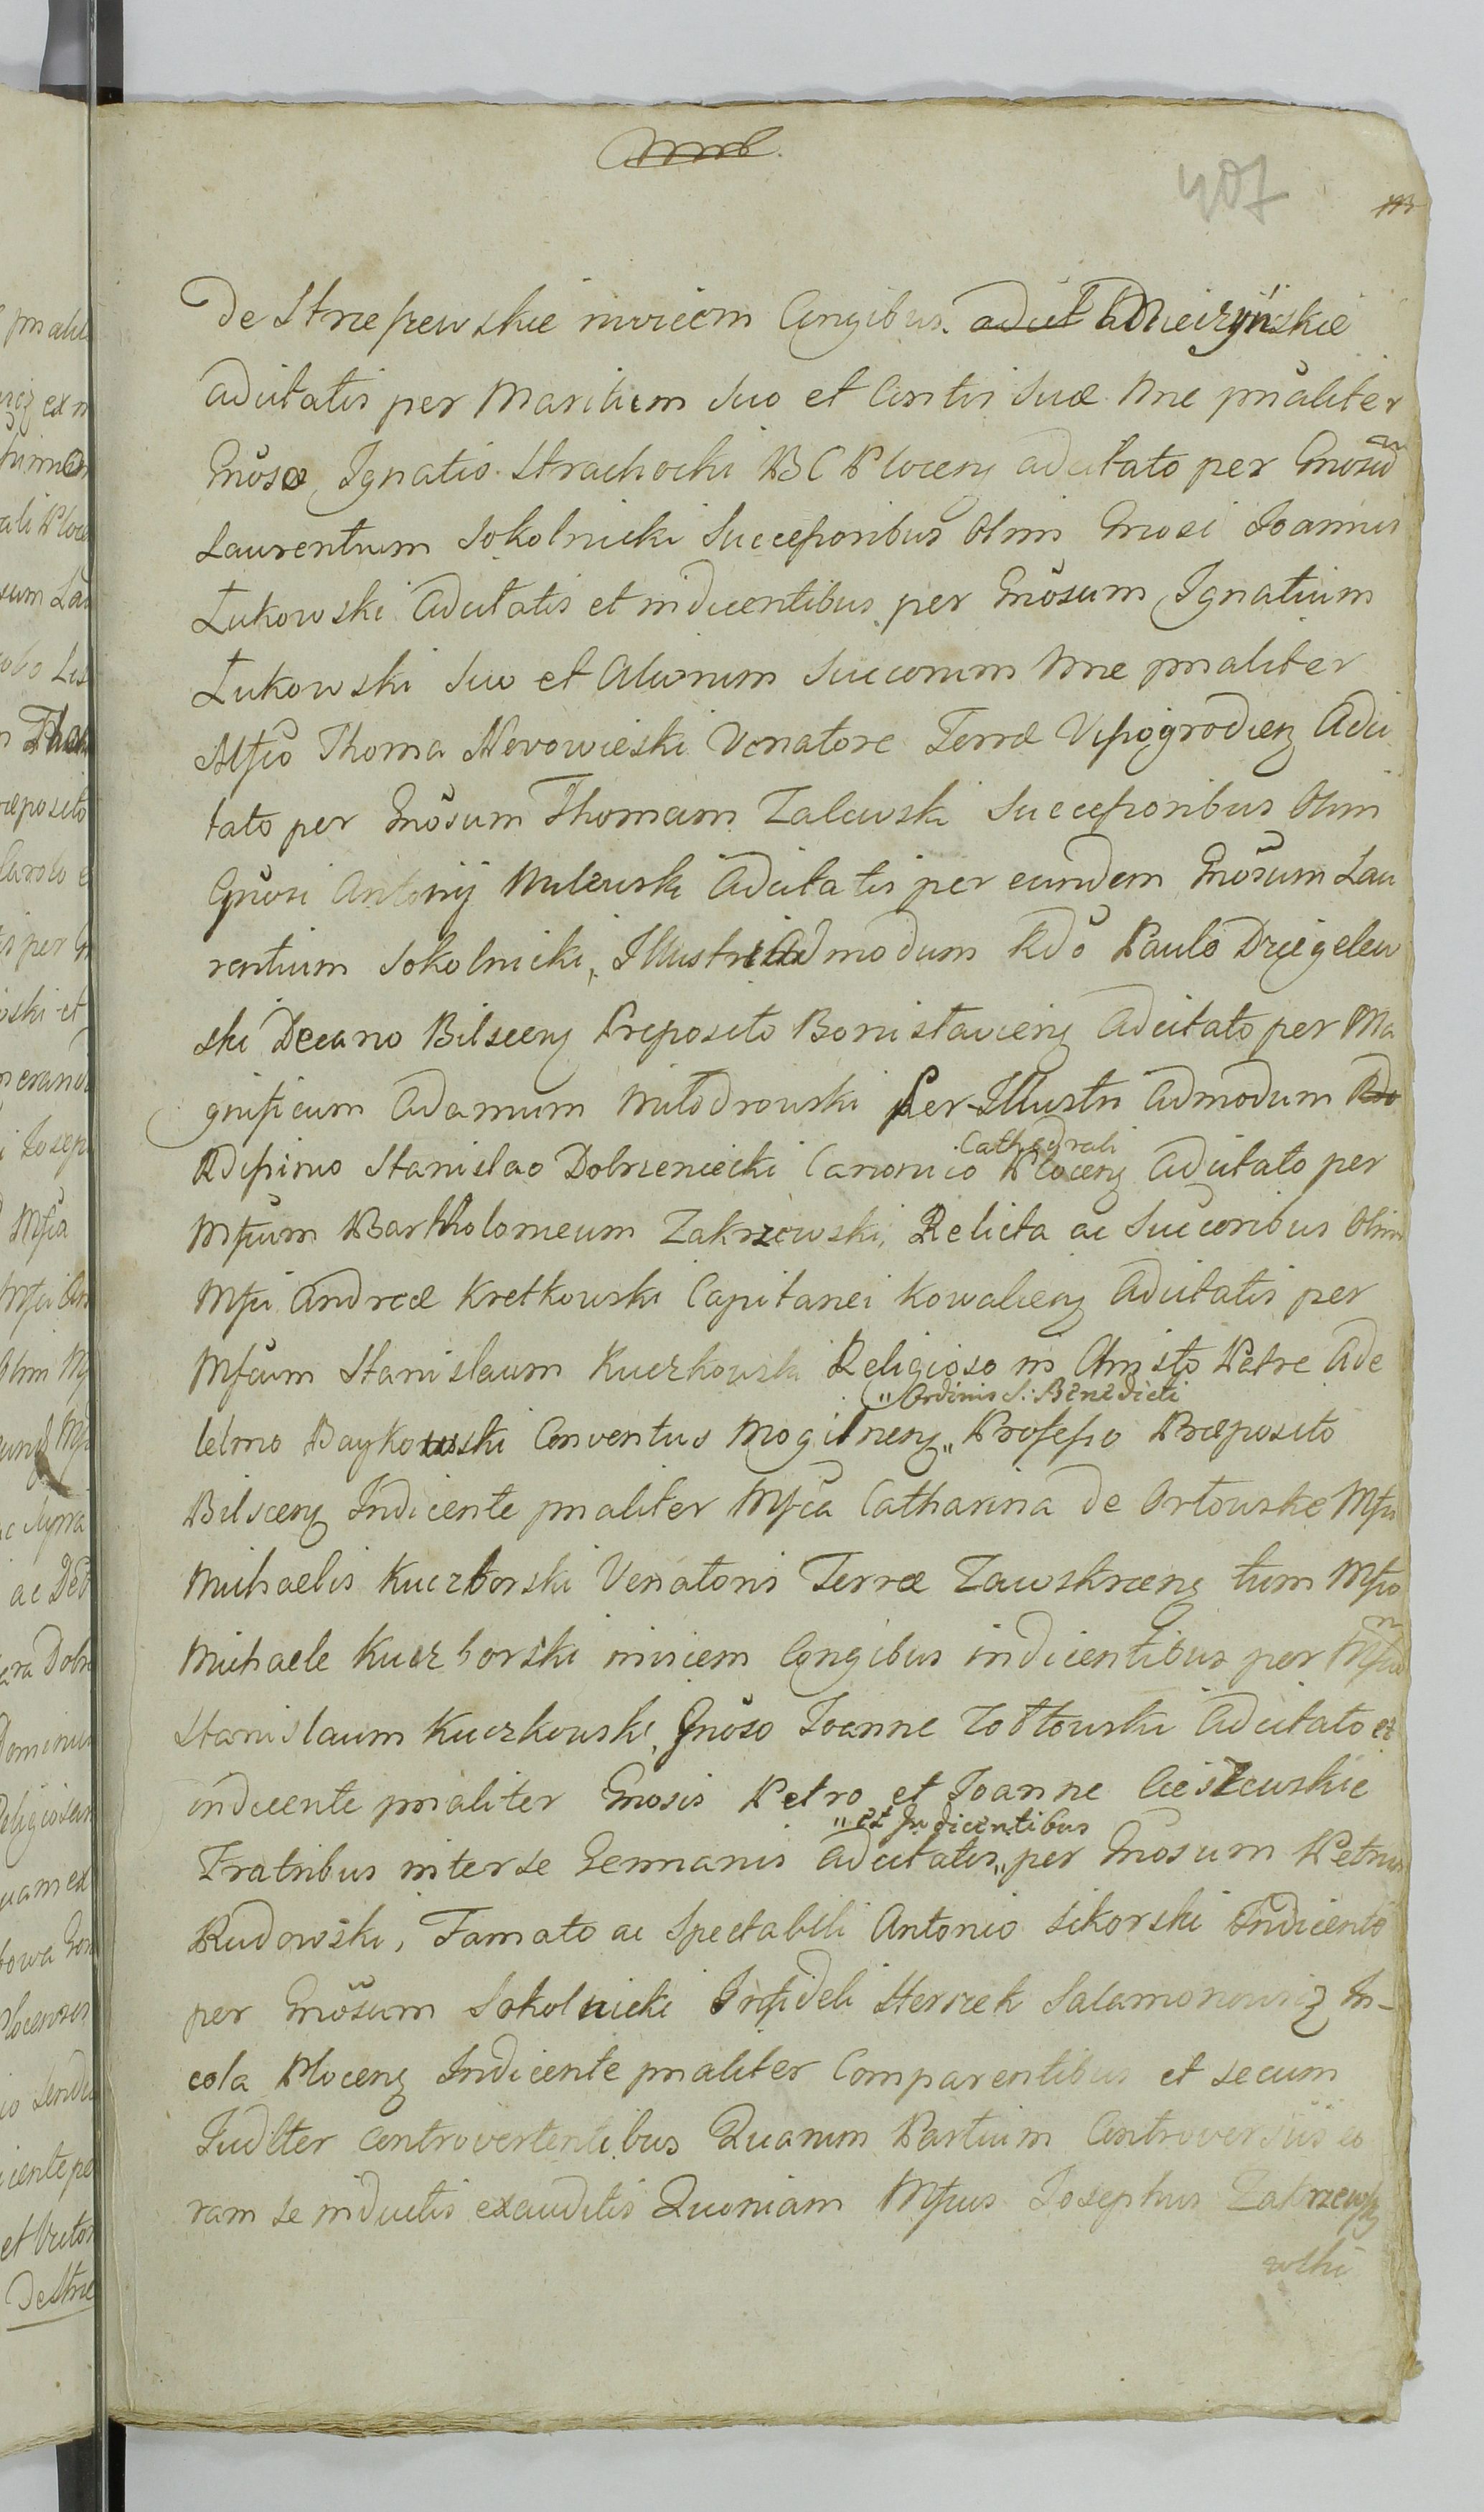 407
de Strzeszewskie invicem Congibus. adcit Mieczyńskie
adcitatis per Maritum Suo et Contis Suæ Nne pnaliter
Gnoso Ignatio Strachocki B C Plocens adcitato per Gnosum
Laurentium Sokolnicki Successoribus Olim Gnosi Joannis
Łukowski Adcitatis et indicentibus per Gnosum Ignatium
Łukowski Suo et Aliorum Succorum Nne pnaliter
Mfco Thoma Nowowieski Venatore Terræ Vissogrodiens Adci
tato per Gnosum Thomam Zalewski Successoribus Olim
Gnosi Antonij Milewski Adcitatis per eundem Gnosum Lau
rentium Sokolnicki, Illustri Admodum Rdo Paulo Dzięgelew
ski Decano Bilscens Preposito Bonislaviens Adcitato per Ma
gnificum Adamum Miłodrowski Per-Illustri Admodum Rdo
Cathedrali
Rdissimo Stanislao Dobrzeniecki Canonico Plocens Adcitato per
Mfcum Bartholomeum Zakrzewski, Relicta ac Succoribus Olim
Mfci Andreæ Kretkowski Capitanei Kowaliens Adcitatis per
Mfcum Stanislaum Kuczkowski Religioso in Christo Patre Ade
" Ordinis S: Benedicti
lelmo Baykowski Conventus Mogilnens " Professo Præposito
Bilscens Indicente pnaliter Mfca Catharina de Orłowskie Mfci
Michaelis Kuczborski Venatoris Terræ Zawskrzens tum Mfco
Michaele Kuczborski invicem Congibus indicentibus per Mfcum
Stanislaum Kuczkowski, Gnoso Joanne Zołtowski Adcitato et
indicente pnaliter Gnosis Petro et Joanne Cieszewskie
" et Indicentibus
Fratribus inter se Germanis Adcitatis " per Gnosum Petrum
Rudowski, Famato ac Spectabili Antonio Sikorski Indicente
per Gnosum Sokolnicki Infideli Herszek Salamonowicz In-
cola Plocens Indicente pnaliter Comparentibus et secum
Judlter Controvertentibus Quarum Partium Controversiis co
ram se inductis exauditis Quoniam Mfcus Josephus Zakrzewski
wski